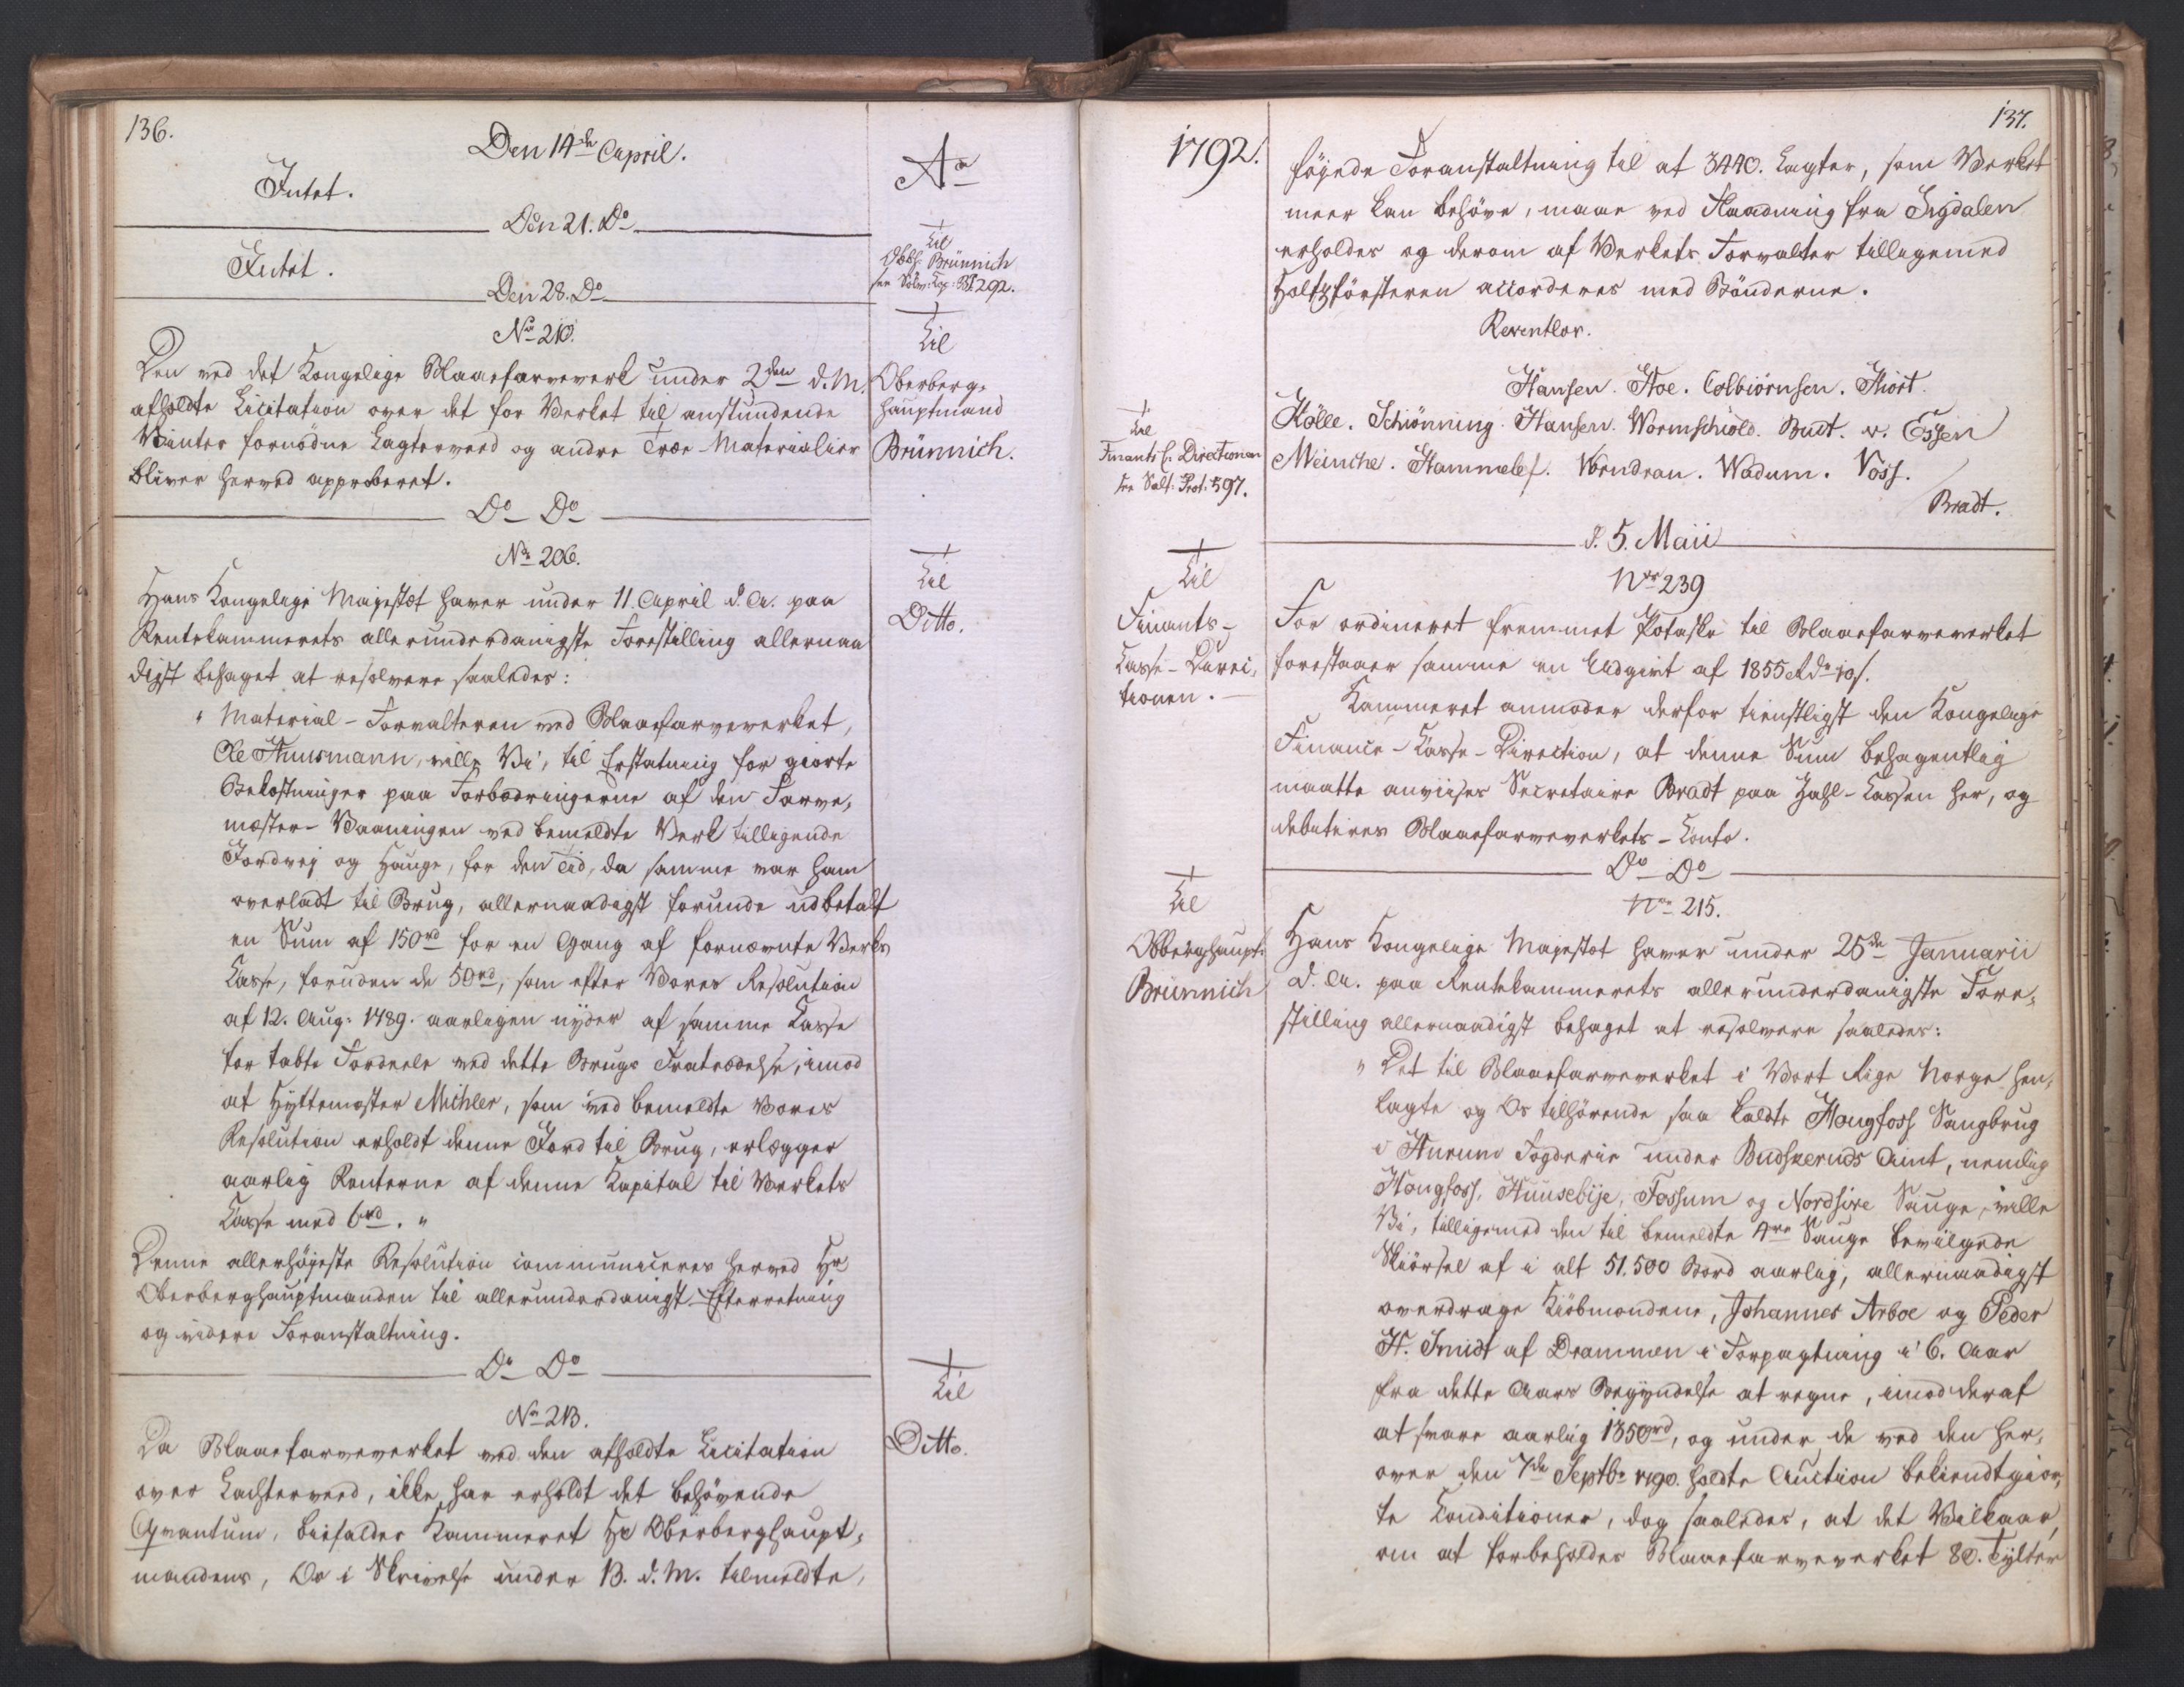 136.
Den 14de April.
Intet.
Den 21. Do
Intet.
Den 28. Do
No 210.
Den ved det Kongelige Blaaefarveverk under 2den d. M.
afholdte Licitation over det for Verket til anstundende
Vinter fornødne Lagterveed og andre Træe-Materialier
bliver herved approberet.
Do Do
No 206.
Hans Kongelige Majestæt haver under 11. April d. A. paa
Rentekammerets allerunderdanigste Forestilling allernaa
digst behaget at resolvere saaledes:
" Material-Forvalteren ved Blaaefarveverket,
Ole Thuusmann, ville Vi, til Erstatning for giorte
Bekostninger paa Forbedringerne af den Farve,
mester-Vaaningen ved bemeldte Verk tilligende
Jordvej og Hauge, for den Tid, da samme var ham
overladt til Brug, allernaadigst forunde udbetalt
en Sum af 150rd for en Gang af fornævnte Verks
Casse, foruden de 50rd, som efter Vores Resolution
af 12. Aug: 1789. aarligen nyder af samme Casse
for tabte Fordeele ved dette Brugs Fratrædelse, imod
at Hyttemester Michler, som ved bemeldte Vores
Resolution erholdt denne Jord til Brug, erlægger
aarlig Renterne af denne Kapital til Verkets
Casse med 6rd. "
Denne allerhøjeste Resolution communiceres herved Hr
Oberberghauptmanden til allerunderdanigst Efterretning
og videre Foranstaltning.
Do Do
No 213.
Da Blaaefarveverket ved den afholdte Licitation
over Lachterveed, ikke har erholdt det behøvende
Qvantum, bifalder Kammeret Hr Oberberghaupt,
mandens, Os i Skrivelse under 13. d. M. tilmeldte,
Ao
Til
Obbh: Brünnich
see Sølv: Cop: B: 292.
Til
Oberberg,
hauptmand
Brünnich.
Til
Ditto.
Til
Ditto.
1792.
Til
Finants C. Directionen
see Salt: Prot: 597.
Til
Finants-
Casse-Direc,
tionen.
Til
Obberghaupt:
Brünnich
137.
føjede Foranstaltning til at 3440. Lagter, som Verket
meer kan behøve, maae ved Flaadning fra Sigdalen
erholdes og derom af Verkets Forvalter tilligemed
Holtzførsteren accorderes med Bønderne.
Reventlov.
Hansen. Hoe. Colbiørnsen. Hiort.
Kølle. Schiønning. Hansen. Wormschiold. Budt. v. Essen
Meinche. Hammelef. Wendran. Wadum. Voss.
Bradt.
d. 5. Maii
No 239
For ordineret fremmet Potaske til Blaaefarveverket
forestaaer samme en Udgivt af 1855 Rdr 10s.
Kammeret anmoder derfor tienstligst den Kongelige
Finance-Casse-Direction, at denne Sum behagentlig
maatte anviises Secretaire Bradt paa Zahl-Cassen her, og
debiteres Blaaefarveverkets-Conto.
Do Do
No 215.
Hans Kongelige Majestæt haver under 25de Januarii
d. A. paa Rentekammerets allerunderdanigste Fore,
stilling allernaadigst behaget at resolvere saaledes:
" Det til Blaaefarveverket i Vort Rige Norge hen,
lagte og Os tilhørende saa kaldte Hougfoss Saugbrug
i Hurum Fogderie under Budskeruds Amt, nemlig
Hougfoss, Huusebye, Fossum og Nordsire Sauge, ville
Vi, tilligemed den til bemeldte 4re Sauge bevilgede
Skiørsel af i alt 51.500 Bord aarlig, allernaadigst
overdrage Kiøbmændene, Johannes Arboe og Peder
H. Smidt af Drammen i Forpagtning i 6. Aar
fra dette Aars Begyndelse at regne, imod deraf
at svare aarlig 1350rd, og under de ved den her,
over den 7de Septbr 1790. holdte Auction bekiendtgior,
te Conditioner, dog saaledes, at det Vilkaar,
om at forbeholdes Blaaefarveverket 80. Tylter